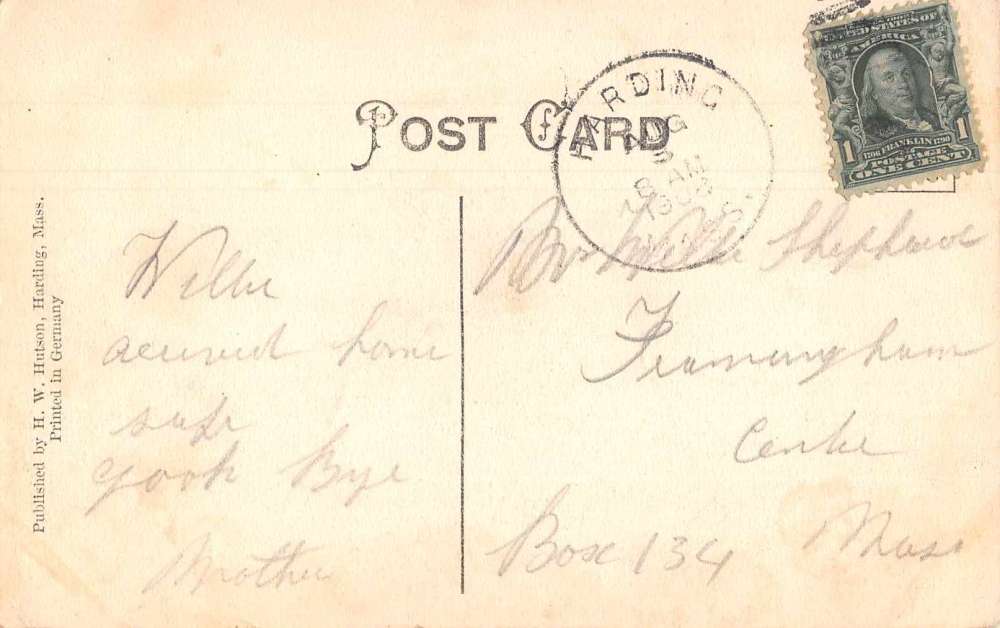 POST CARD
HARDING
AUG
8 AM
UNITED STATES OF
AMERICA
1706 FRANKLIN 1790
1 POSTAGE 1
ONE CENT
Published by H. W. Hutson, Harding, Mass.
Printed in Germany
Willie
home
safe
good Bye
Mother
Willie
Framingham
Centre
Box 134 Mass